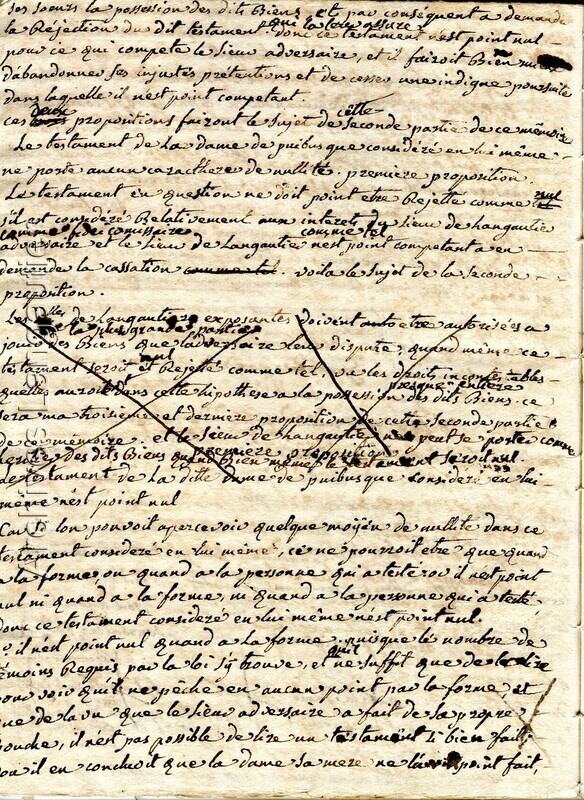 ses soeurs la possession des dits Biens, et par conséquent a demandé
que la loy assure
la Réjection du dit testament. donc ce testament n'est point nul
pour ce qui compete le sieur adversaire, et il fairoit Bien mieux
d'abandonner ses injustes prétentions et de cesser une indigne poursuite
dans laquelle il n'est point competant.
deux cette
ces propositions fairont le sujet de seconde partie de ce mémoire
Le testament de la dame de puibusque considéré en lui même
ne porte aucun caracthere de nullité. premiere proposition.
Le testament en question ne doit point etre Rejetté comme nul
s'il est considéré Relativement aux interets du sieur de hangautier
comme fidei comissaire comme tel
adversaire et le sieur de Langautier n'est point competant a en
demander la cassation comme tel. voila le sujet de la seconde
proposition.
Les de Langautier exposantes doivent etre autorisées a
la plus grande partie
jouir des Biens que l'adversaire leur dispute, quand même ce
nul
testament seroit Rejetté comme tel, vu les droits incontestables
presque entiere
qu'elles auroit dans cette hipothese a la possession des dits Biens. ce
sera ma troisieme et derniere proposition de cette seconde partie
de ce mémoire. et le sieur de hangautier ne peut se porter comme
premiere proposition
heritier des dits Biens quand Bien même le testament seroit nul.
Le testament de la ditte dame de puibusque considéré en lui
même n'est point nul
Car si lon pouvoit apercevoir quelque moÿen de nullité dans ce
testament considéré en lui même, ce ne pourroit etre que quand
a la forme, ou quand a la personne qui a testé. or il n'est point
nul ni quand a la forme, ni quand a la personne qui a testé,
donc ce testament considéré en lui même n'est point nul.
il n'est point nul quand a la forme. puisque le nombre de
quil
témoins Requis par la loi s'ÿ trouve, et ne suffit que de le lire
pour voir qu'il ne pêche en aucun point par la forme, et
que de la vu que le sieur adversaire a fait de sa propre
bouche, il n'est pas possible de lire un testament si bien fait.
ou il en concluoit que la dame sa mere ne l'avoit point fait,